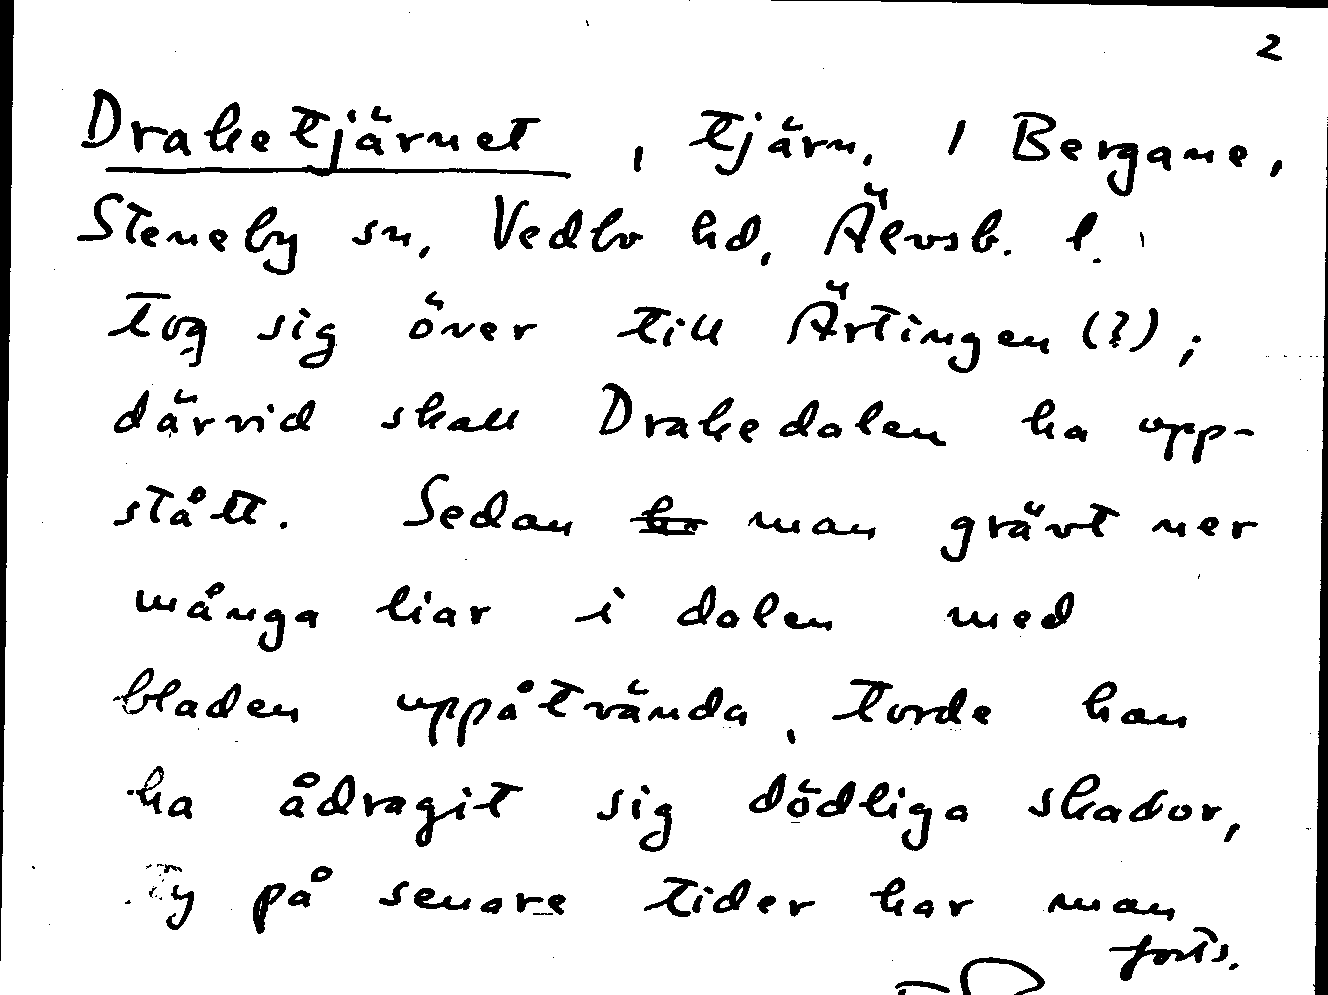 2
Draketjärnet, tjärn, / Bergane,
Steneby sn, Vedbo hd, Älvsb. l.
tog sig över till Ärtingen (?);
därvid skall Drakedalen ha upp-
stått. Sedan man grävt ner
många liar i dalen med
bladen uppåtvända, torde han
ha ådragit sig dödliga skador,
Ty på senare tider har man
forts.